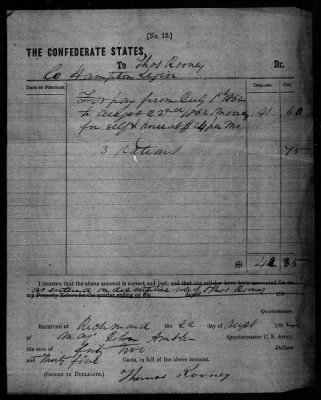 [No. 12.]
THE CONFEDERATE STATES,
To Thos Rooney Dr.
Co Hampton Legion
DATE OF PURCHASE. DOLLARS. CTS.
For pay from July 1st 1862
to August 22nd 1862
for self & horse at $24 per Mo 41 60
3 rations 75
42 35
I certify that the above account is correct and just; and that the articles have been accounted for on
as entered on descriptive roll of Thos Rooney
my Property Return for the quarter ending on the
Quartermaster.
RECEIVED at Richmond the 22 day of Augst 186
of Maj John Ambler Quartermaster C. S. Army,
the sum of Forty Two Dollars
and Thirty five Cents, in full of the above account.
(SIGNED IN DUPLICATE.) Thomas Rooney